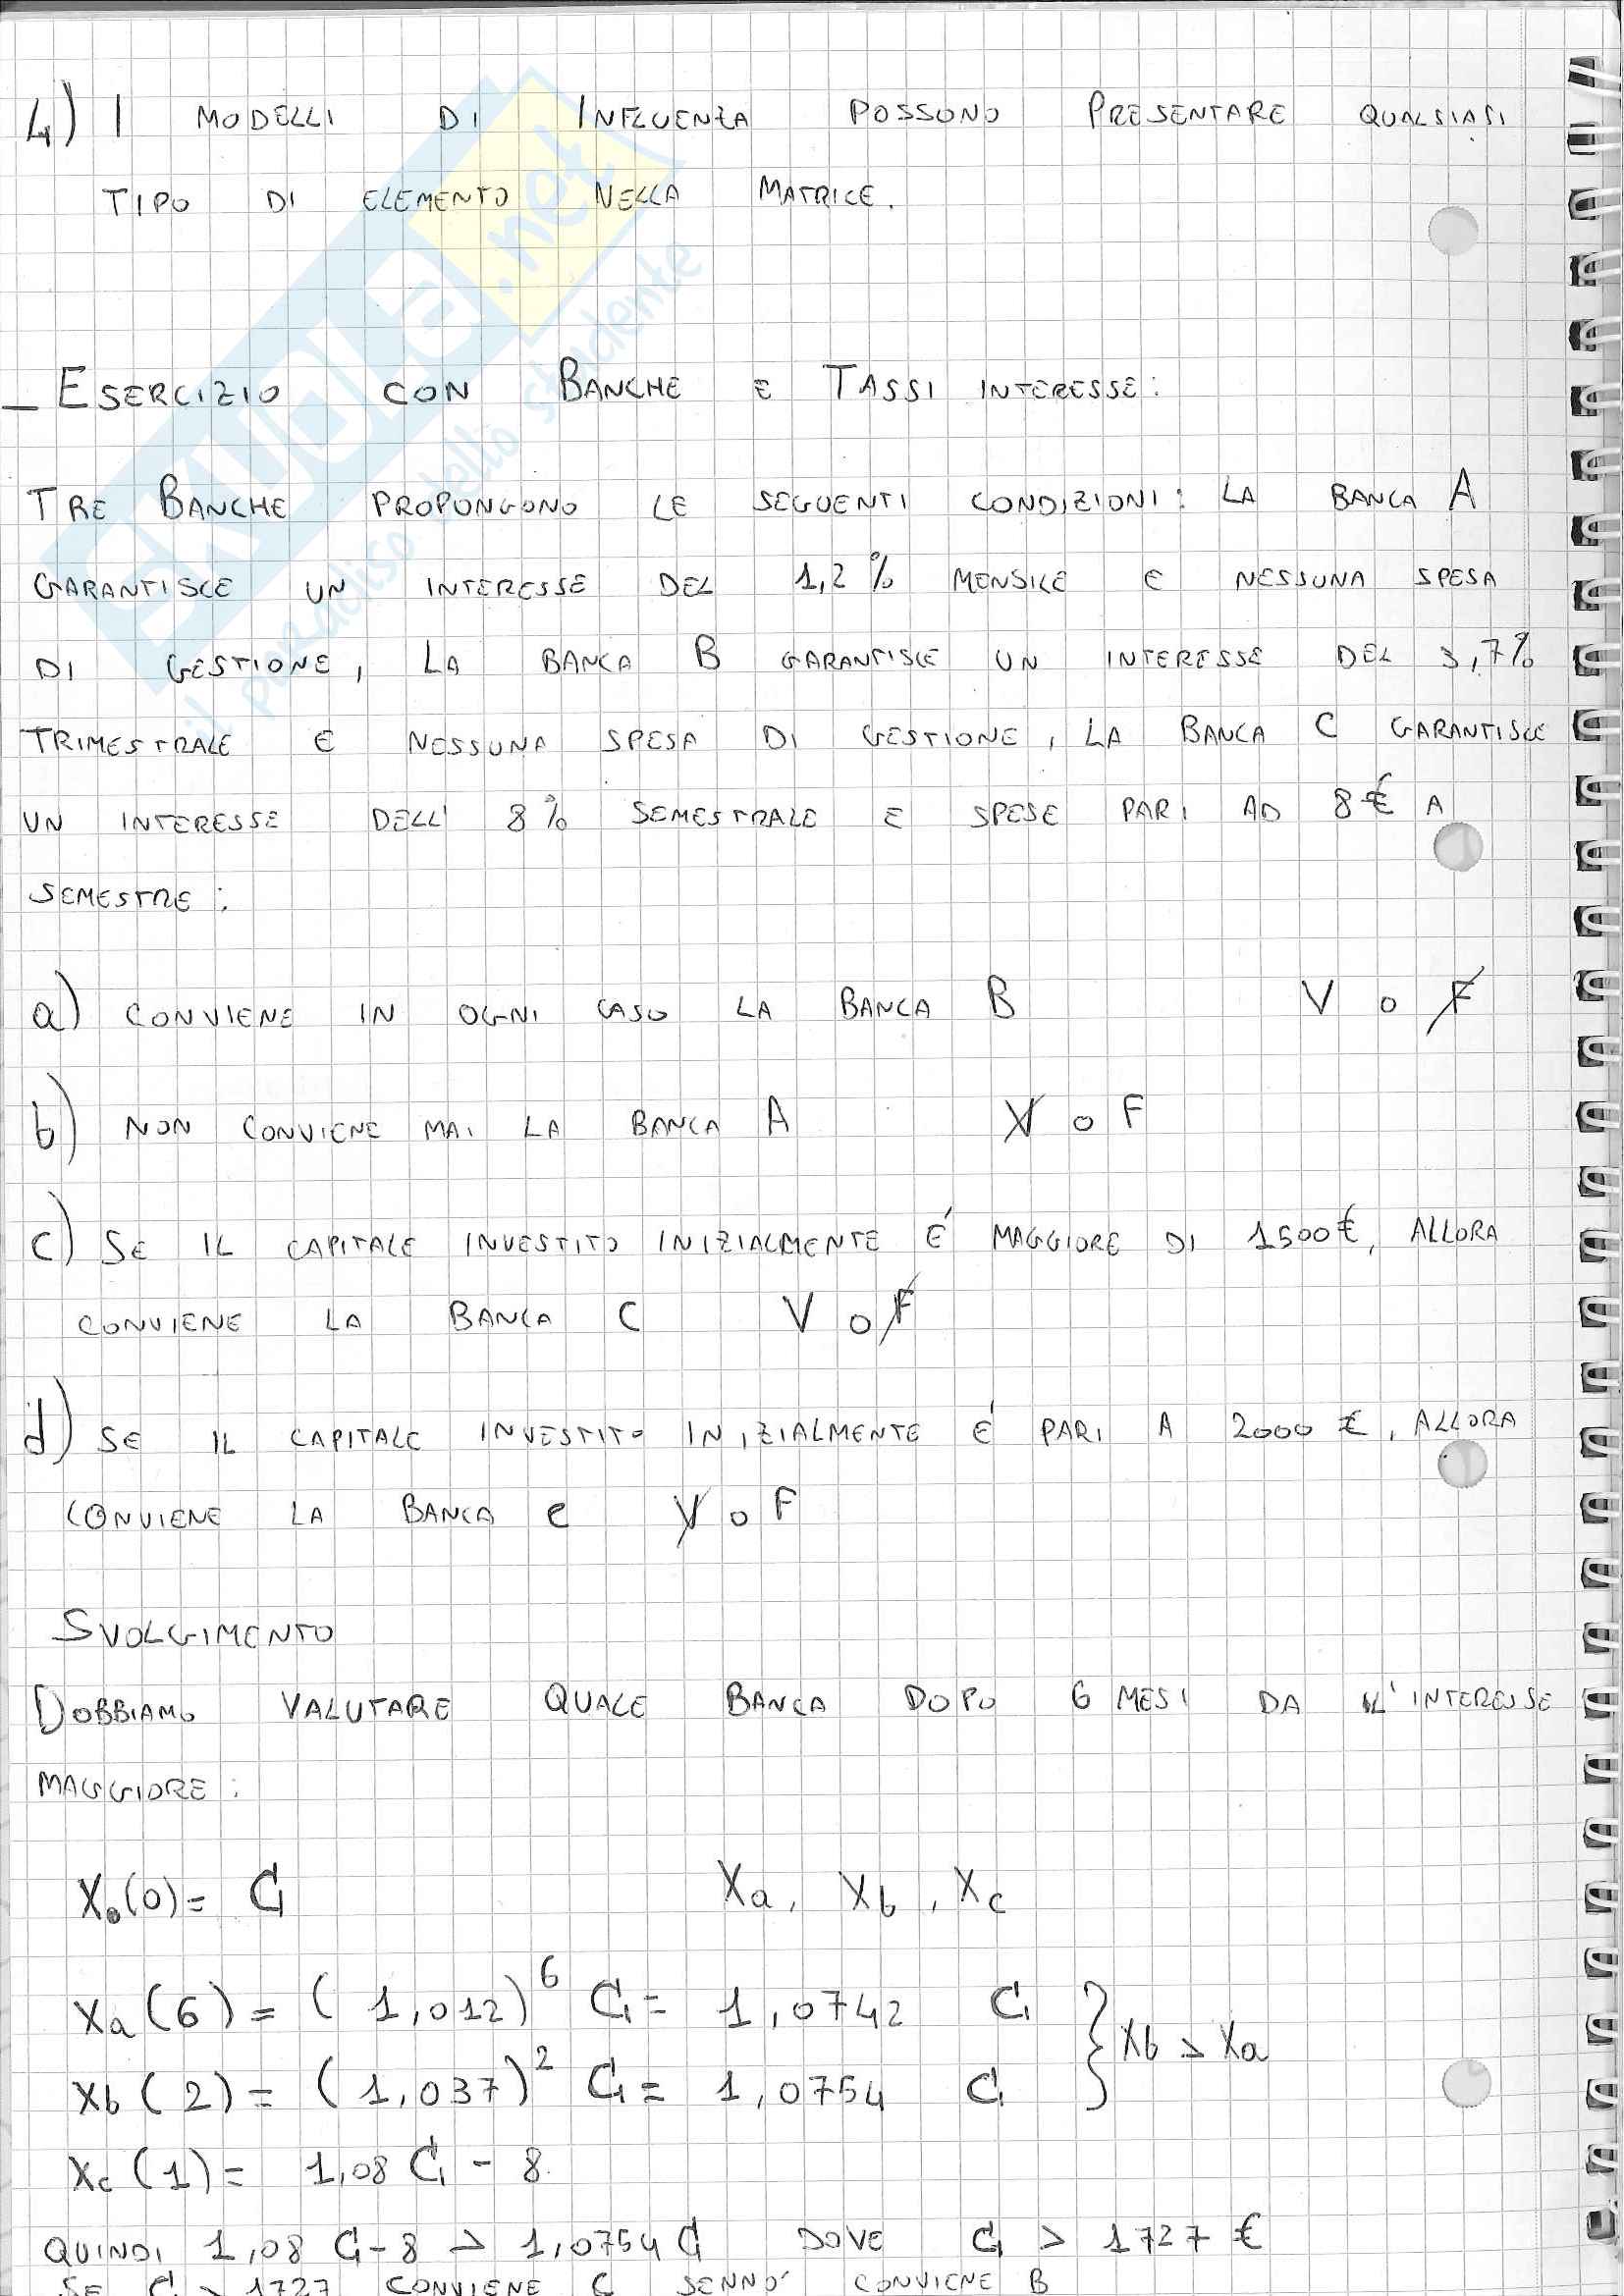 4) I MODELLI DI INFLUENZA POSSONO PRESENTARE QUALSIASI
TIPO DI ELEMENTO NELLA MATRICE.
SKUOLA.net
il paradiso dello studente
_ ESERCIZIO CON BANCHE E TASSI INTERESSE:
TRE BANCHE PROPONGONO LE SEGUENTI CONDIZIONI: LA BANCA A
GARANTISCE UN INTERESSE DEL 1,2% MENSILE E NESSUNA SPESA
DI GESTIONE, LA BANCA B GARANTISCE UN INTERESSE DEL 3,7%
TRIMESTRALE E NESSUNA SPESA DI GESTIONE, LA BANCA C GARANTISCE
UN INTERESSE DELL' 8% SEMESTRALE E SPESE PARI AD 8€ A
SEMESTRE:
a) CONVIENE IN OGNI CASO LA BANCA B V o F
b) NON CONVIENE MAI LA BANCA A V o F
c) SE IL CAPITALE INVESTITO INIZIALMENTE É MAGGIORE DI 1500€, ALLORA
CONVIENE LA BANCA C V o F
d) SE IL CAPITALE INVESTITO INIZIALMENTE É PARI A 2000 €, ALLORA
CONVIENE LA BANCA C V o F
SVOLGIMENTO
DOBBIAMO VALUTARE QUALE BANCA DOPO 6 MESI DA L'INTERESSE
MAGGIORE:
X₀(0)= C₁ Xa, Xb, Xc
Xa(6) = (1,012)⁶ C₁ = 1,0742 C₁ } Xb > Xa
Xb(2) = (1,037)² C₁ = 1,0754 C₁
Xc(1) = 1,08 C₁ - 8.
QUINDI 1,08 C₁-8 > 1,0754 C₁ DOVE C₁ > 1727 €
SE C₁ > 1727 CONVIENE C SENNO' CONVIENE B